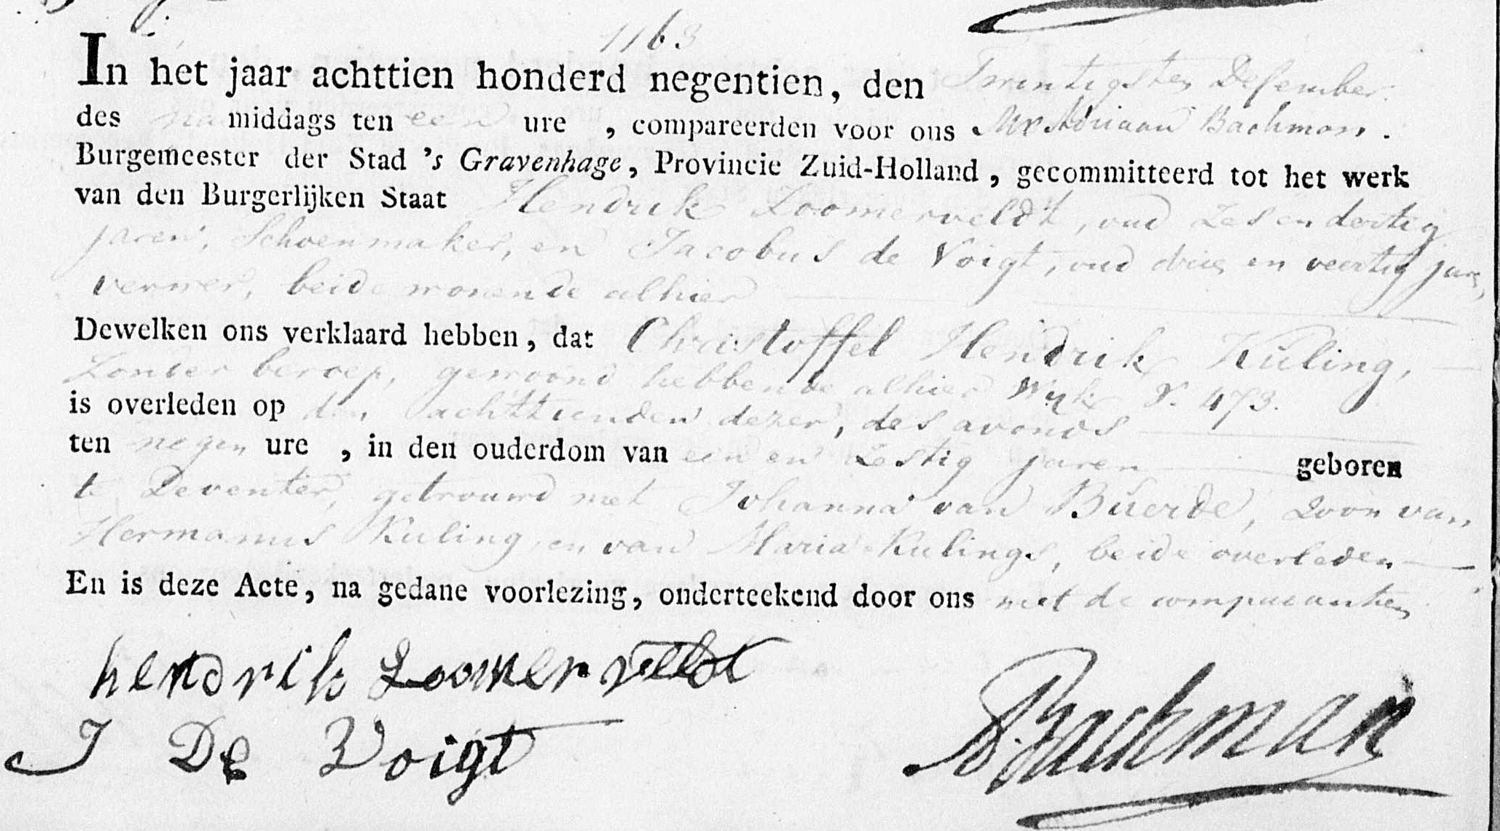 1163
In het jaar achttien honderd negentien, den Twintigsten Desember
des na middags ten een ure , compareerden voor ons Mr Adriaan Bachman.
Burgemeester der Stad 's Gravenhage, Provincie Zuid-Holland, gecommitteerd tot het werk
van den Burgerlijken Staat Hendrik Loomerveldt, oud Zes en dertig
jaren, Schoenmaker, en Jacobus de Voigt, oud drie en veertig jaren,
verwer, beide wonende alhier
Dewelken ons verklaard hebben, dat Christoffel Hendrik Kuling,
Zonder beroep, gewoond hebbende alhier Wyk V. 473.
is overleden op den achttienden dezer, des avonds
ten negen ure , in den ouderdom van een en Zestig jaren geboren
te Deventer, getrouwd met Johanna van Buerde, Zoon van
Hermanus Kuling en van Maria Kulings, beide overleden
En is deze Acte, na gedane voorlezing, onderteekend door ons met de comparanten
hendrik Loomerveldt
J De Voigt
A. Bachman